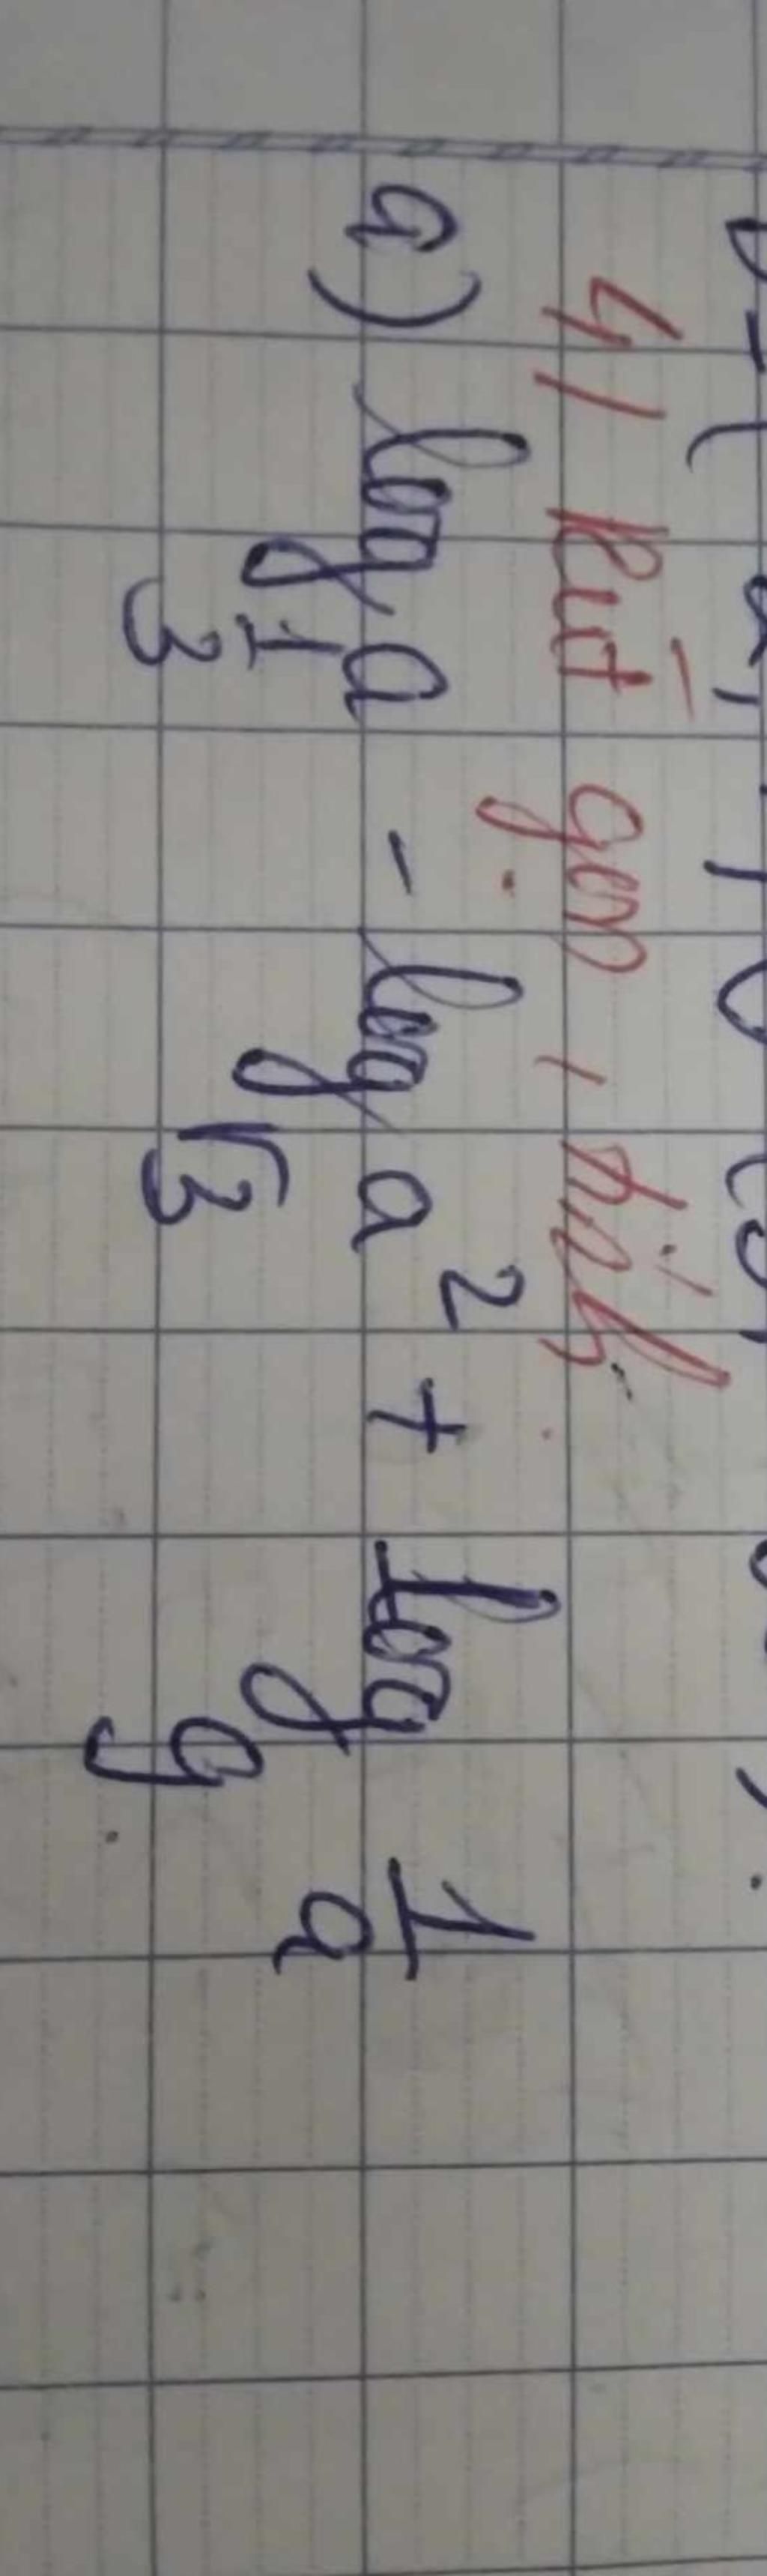 4/ Rút gọn, tính
a) log_{\frac{1}{3}} a - log_{\sqrt{3}} a^2 + log_9 \frac{1}{a}